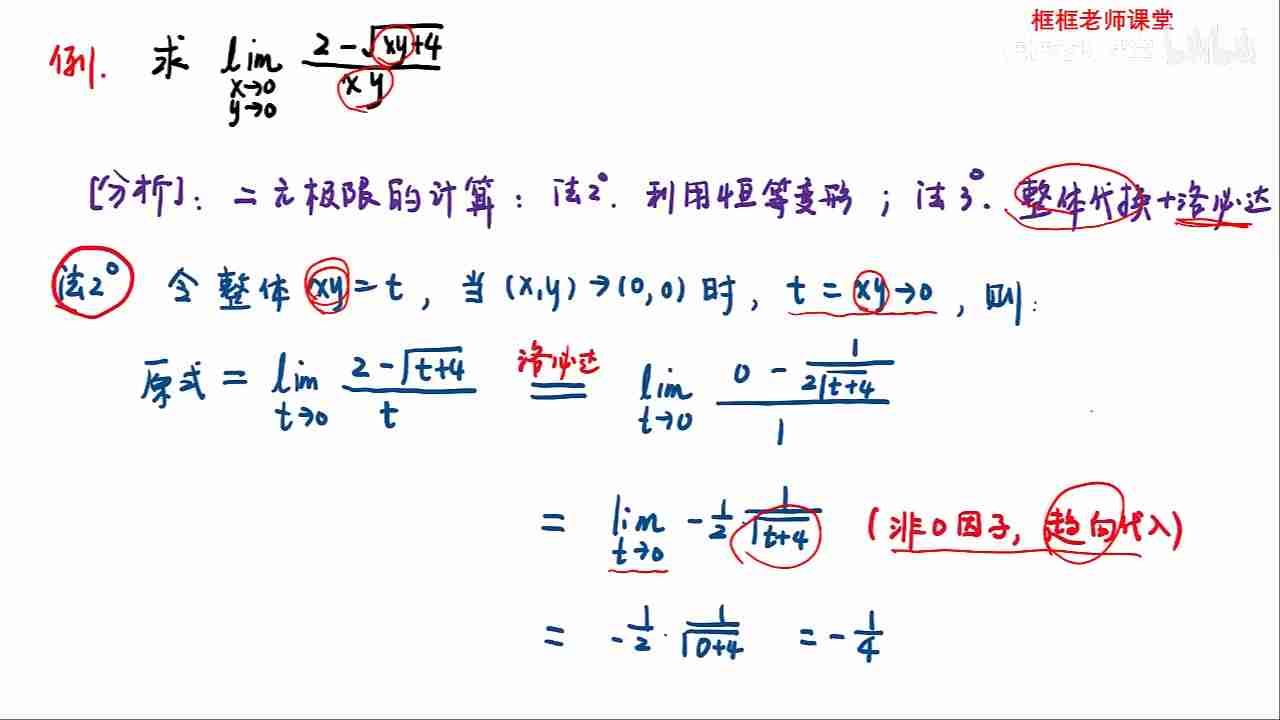 框框老师课堂
例. 求 lim x→0 y→0 (2-√(xy+4))/(xy)
[分析]: 二元极限的计算: 法2°. 利用恒等变形; 法3°. 整体代换+洛必达
法2° 令整体 xy=t, 当(x,y)→(0,0)时, t=xy→0, 则:
原式 = lim t→0 (2-√(t+4))/t 洛必达 = lim t→0 (0-1/(2√(t+4)))/1
= lim t→0 -1/2·1/√(t+4) (非0因子, 趋向代入)
= -1/2·1/√(0+4) = -1/4